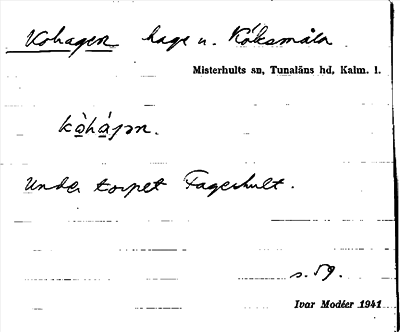 Kohagen hage u. Köksmåla
Misterhults sn, Tunaläns hd, Kalm. l.
kòháʒən.
Under torpet Fagerhult.
s. 59.
Ivar Modéer 1941